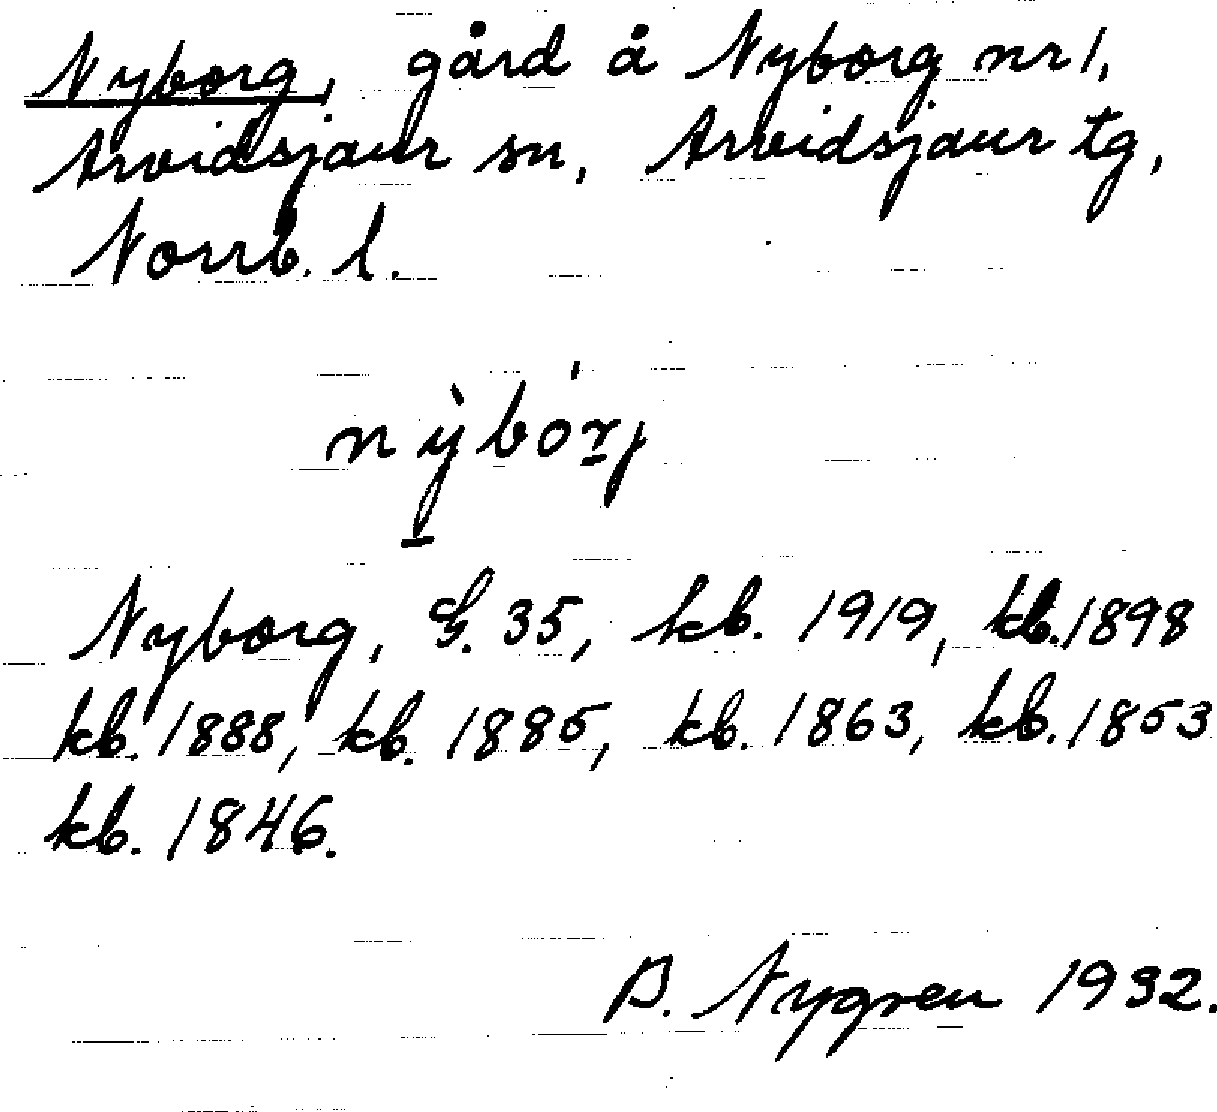 Nyborg, gård å Nyborg nr 1,
Arvidsjaur sn, Arvidsjaur tg,
Norrb. l.
nỳbórj
Nyborg, G. 35, kb. 1919, kb. 1898
kb. 1888, kb. 1885, kb. 1863, kb. 1853
kb. 1846.
B. Nygren 1932.